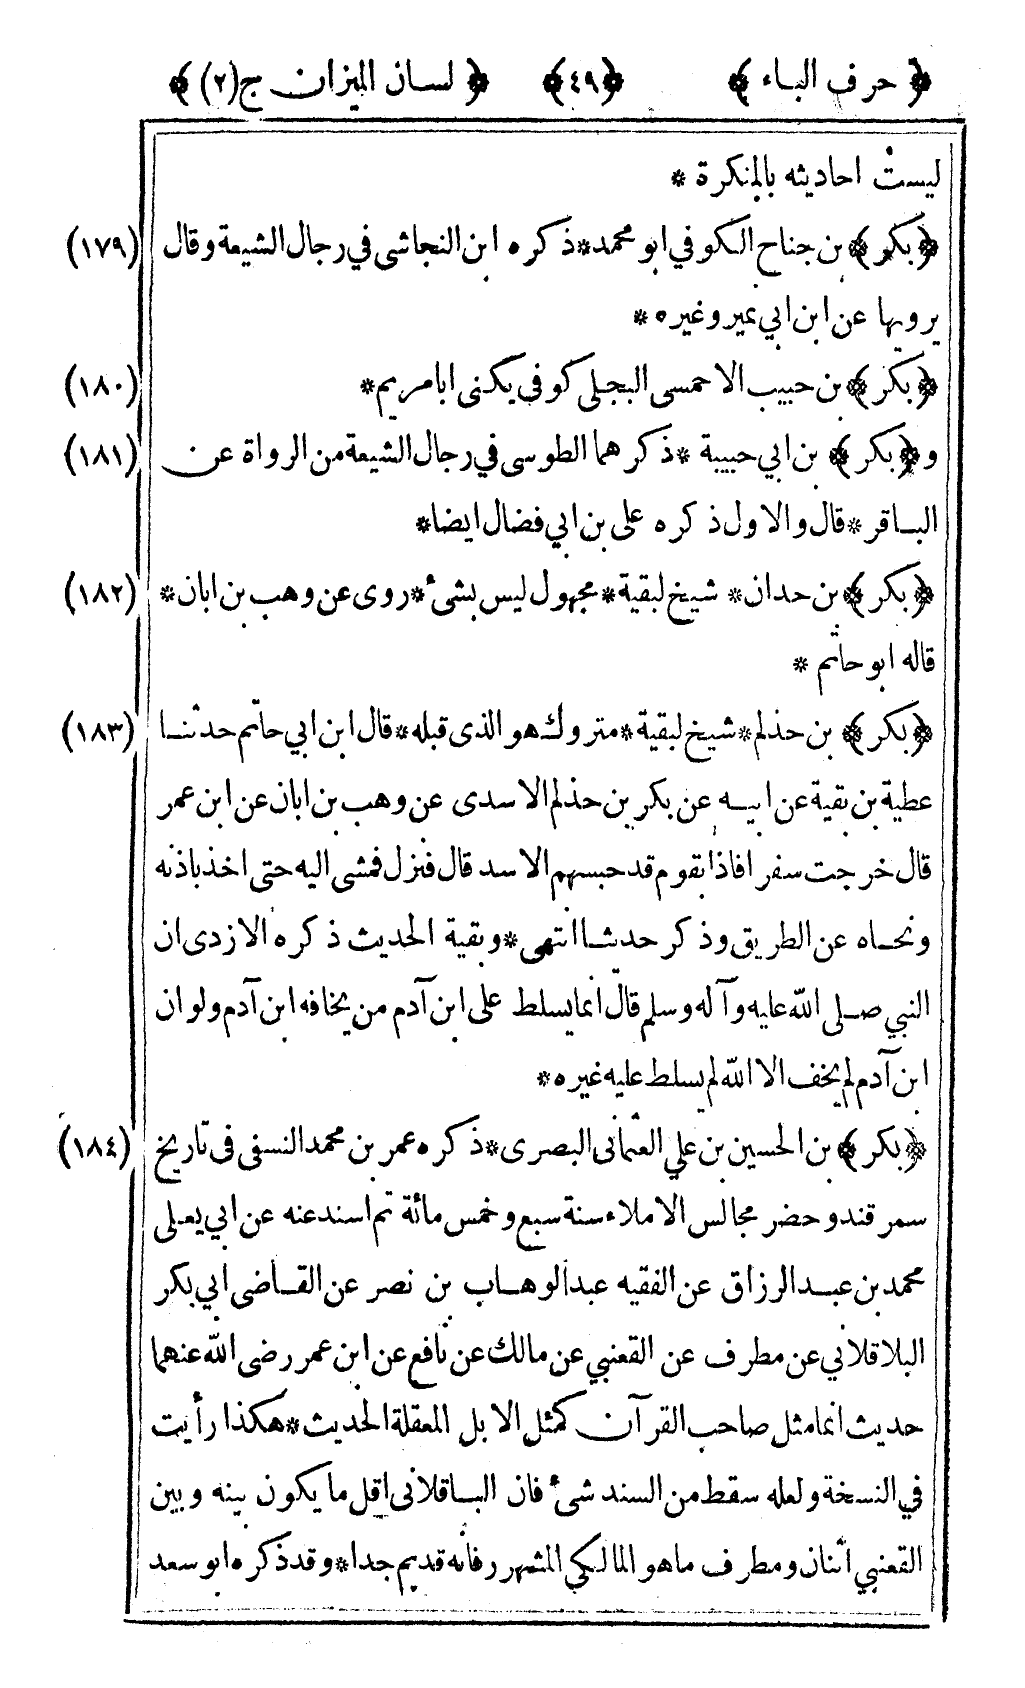 ﴿ حرف الباء ﴾ ﴿٤٩﴾ ﴿ لسان الميزان ج(٢) ﴾
ليست احاديثه بالمنكرة *
﴿بكر﴾ بن جناح الكوفي ابو محمد*ذكره ابن النجاشي في رجال الشيعة وقال (١٧٩)
يرويها عن ابن ابي عمير وغيره *
﴿بكر﴾ بن حبيب الاحمسى البجلى كوفى يكنى ابا مريم* (١٨٠)
و﴿بكر﴾ بن ابي حبيبة *ذكرهما الطوسى في رجال الشيعة من الرواة عن (١٨١)
الباقر*قال والاول ذكره على بن ابي فضال ايضا*
﴿بكر﴾ بن حدان* شيخ لبقية*مجهول ليس بشئ*روى عن وهب بن ابان* (١٨٢)
قاله ابو حاتم *
﴿بكر﴾ بن حذلم*شيخ لبقية*متروك هو الذى قبله*قال ابن ابي حاتم حدثنا (١٨٣)
عطية بن بقية عن ابيه عن بكر بن حذلم الاسدى عن وهب بن ابان عن ابن عمر
قال خرجت سفرا فاذا بقوم قد حبسهم الاسد قال فنزل فمشى اليه حتى اخذ باذنه
ونحاه عن الطريق وذكر حدثنا انتهى*وبقية الحديث ذكره الازدى ان
النبي صلى الله عليه وآله وسلم قال انما يسلط على ابن آدم من يخافه ابن آدم ولو ان
ابن آدم لم يخف الا الله لم يسلط عليه غيره*
﴿بكر﴾ بن الحسين بن علي العثمانى البصرى*ذكره عمر بن محمد النسفى فى تاريخ (١٨٤)
سمرقند وحضر مجالس الاملاء سنة سبع وخمس مائة ثم اسند عنه عن ابي يعلى
محمد بن عبد الرزاق عن الفقيه عبد الوهاب بن نصر عن القاضى ابي بكر
البلاقلانى عن مطرف عن القعنبي عن مالك عن نافع عن ابن عمر رضى الله عنهما
حديث انما مثل صاحب القرآن كمثل الابل المعقلة الحديث*هكذا رأيت
في النسخة ولعله سقط من السند شئ فان الباقلانى اقل ما يكون بينه وبين
القعنبي اثنان ومطرف ما هو المالكي المشهور فانه قديم جدا*وقد ذكره ابو سعد